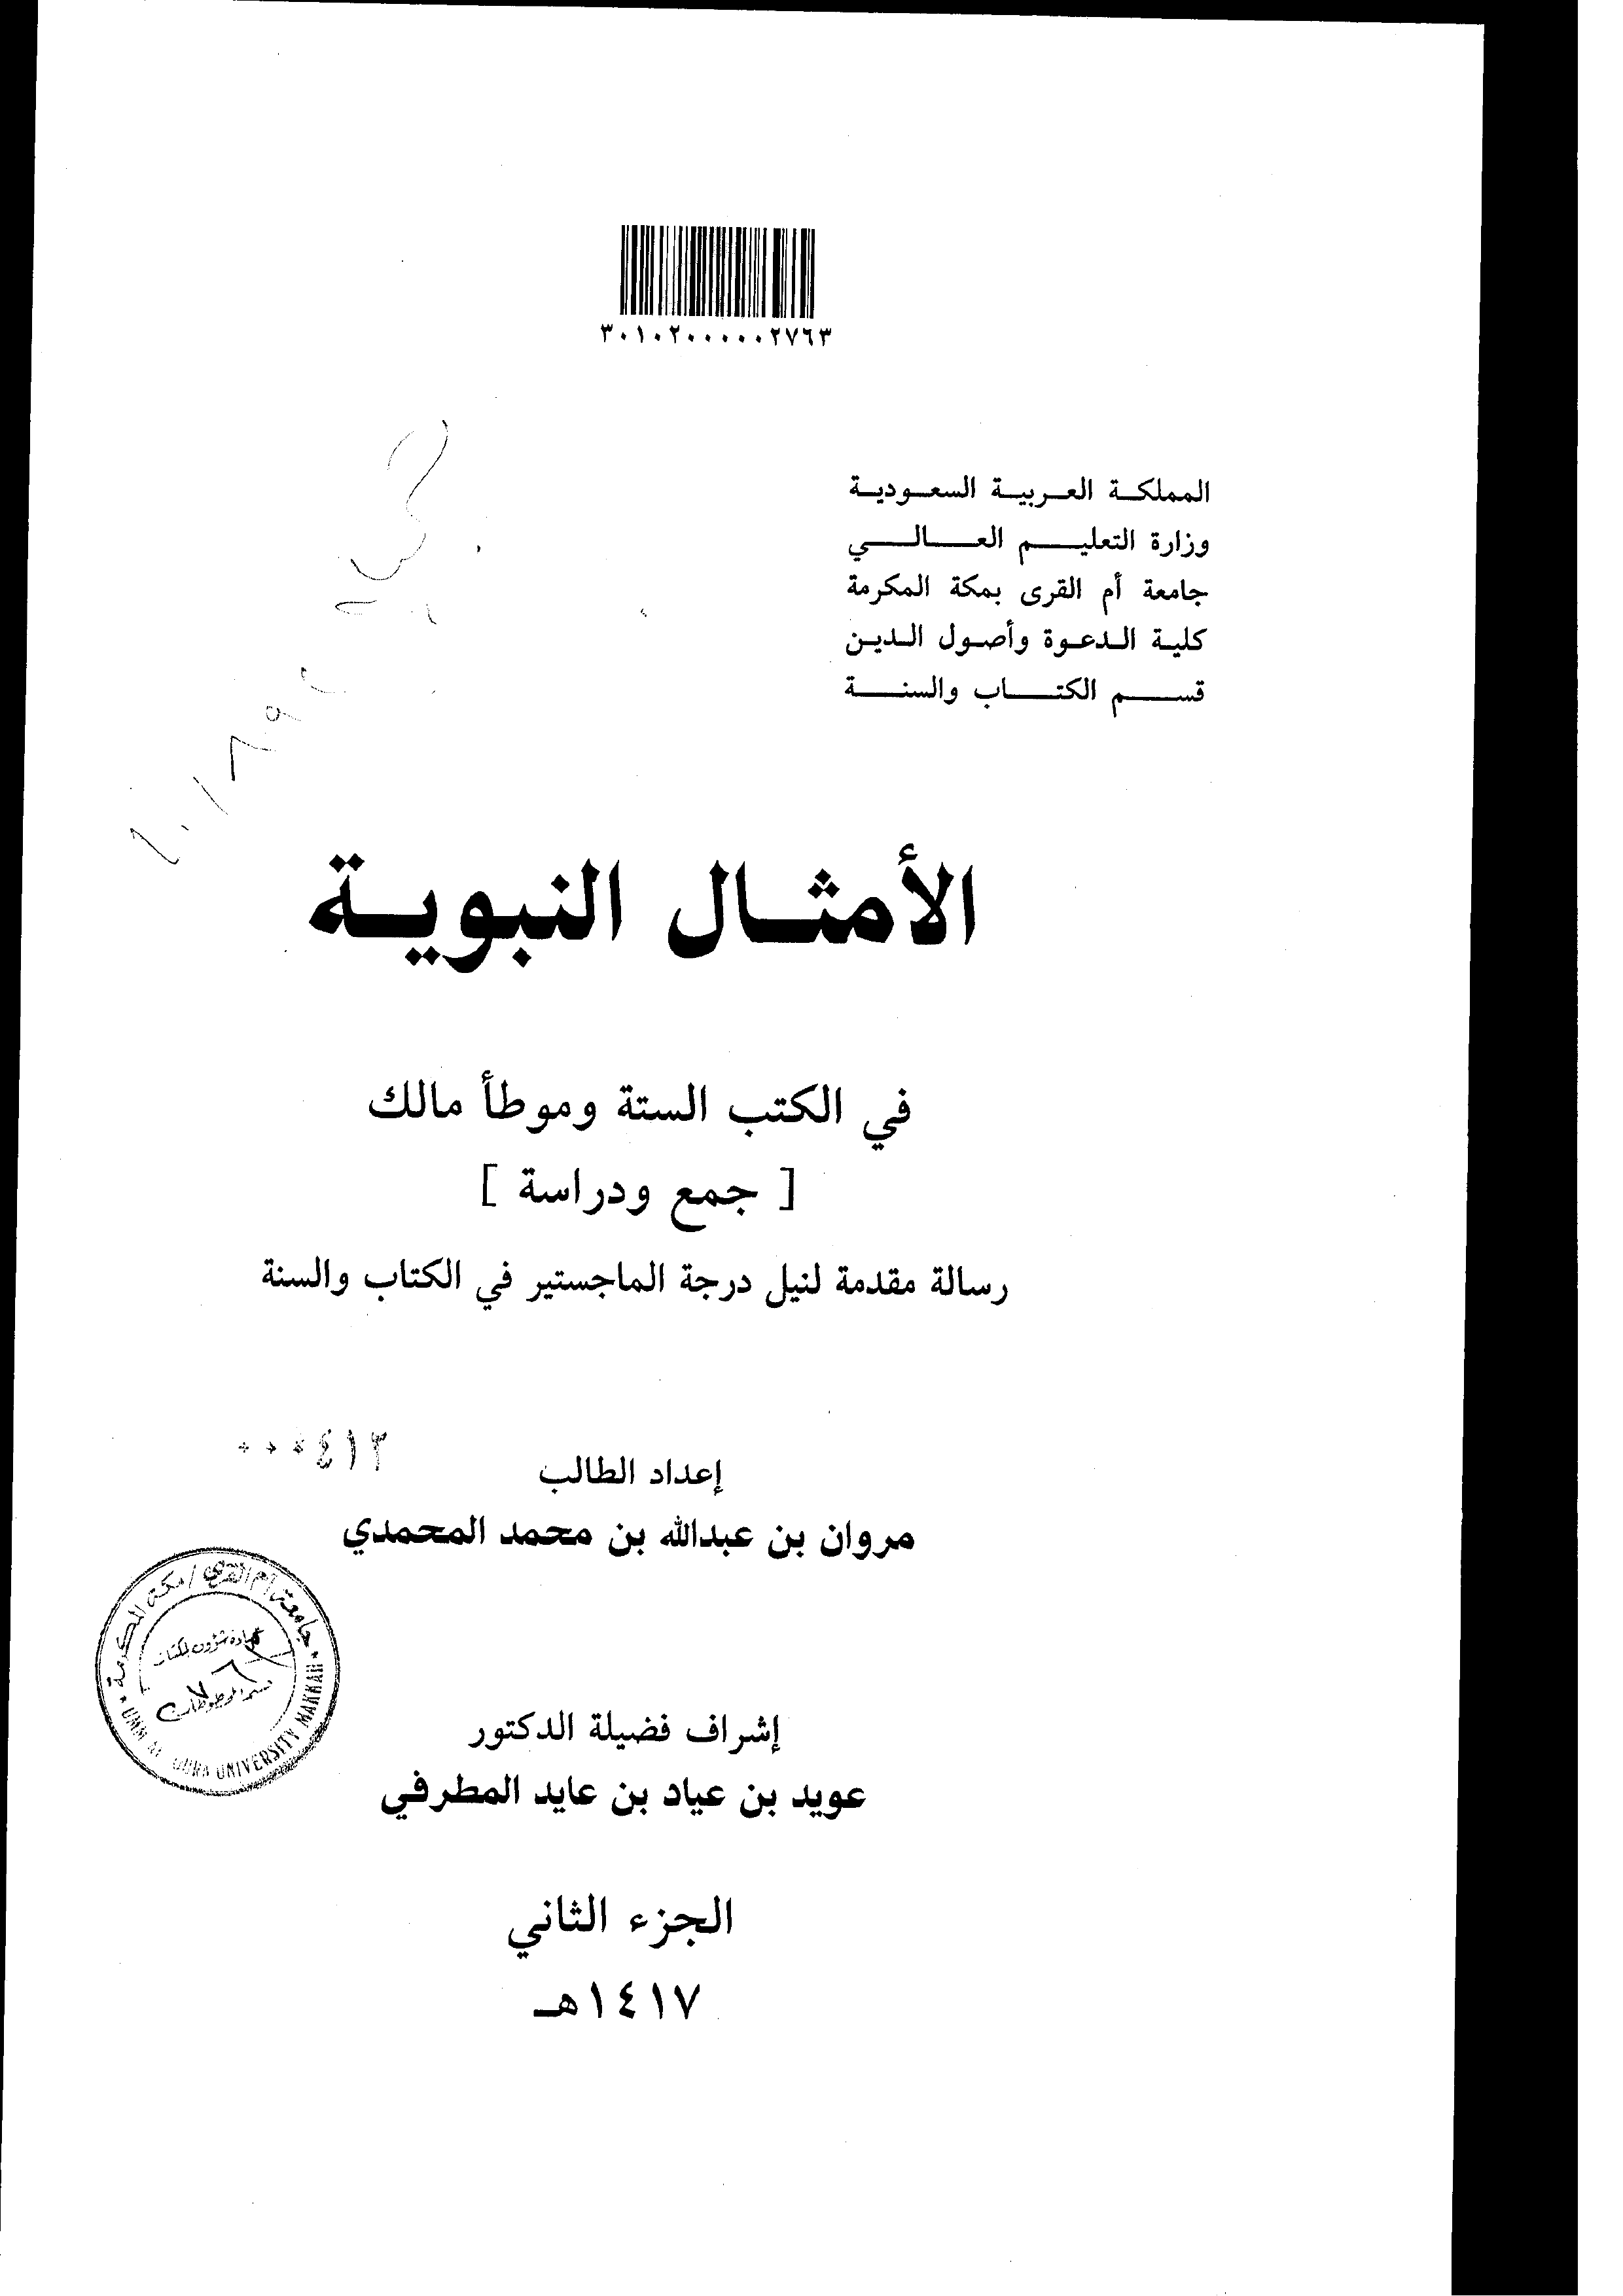 ٣٠١٠٢٠٠٠٠٠٢٧٦٣
المملكة العربية السعودية
وزارة التعليم العالي
جامعة أم القرى بمكة المكرمة
كلية الدعوة وأصول الدين
قسم الكتاب والسنة
الأمثال النبوية
في الكتب الستة وموطأ مالك
[ جمع ودراسة ]
رسالة مقدمة لنيل درجة الماجستير في الكتاب والسنة
٠٠٠٤١٣
إعداد الطالب
مروان بن عبدالله بن محمد المحمدي
جامعة أم القرى / مكة المكرمة
عمادة شؤون المكتبات
قسم المخطوطات
UMM AL QURA UNIVERSITY MAKKAH
إشراف فضيلة الدكتور
عويد بن عياد بن عايد المطرفي
الجزء الثاني
١٤١٧هـ